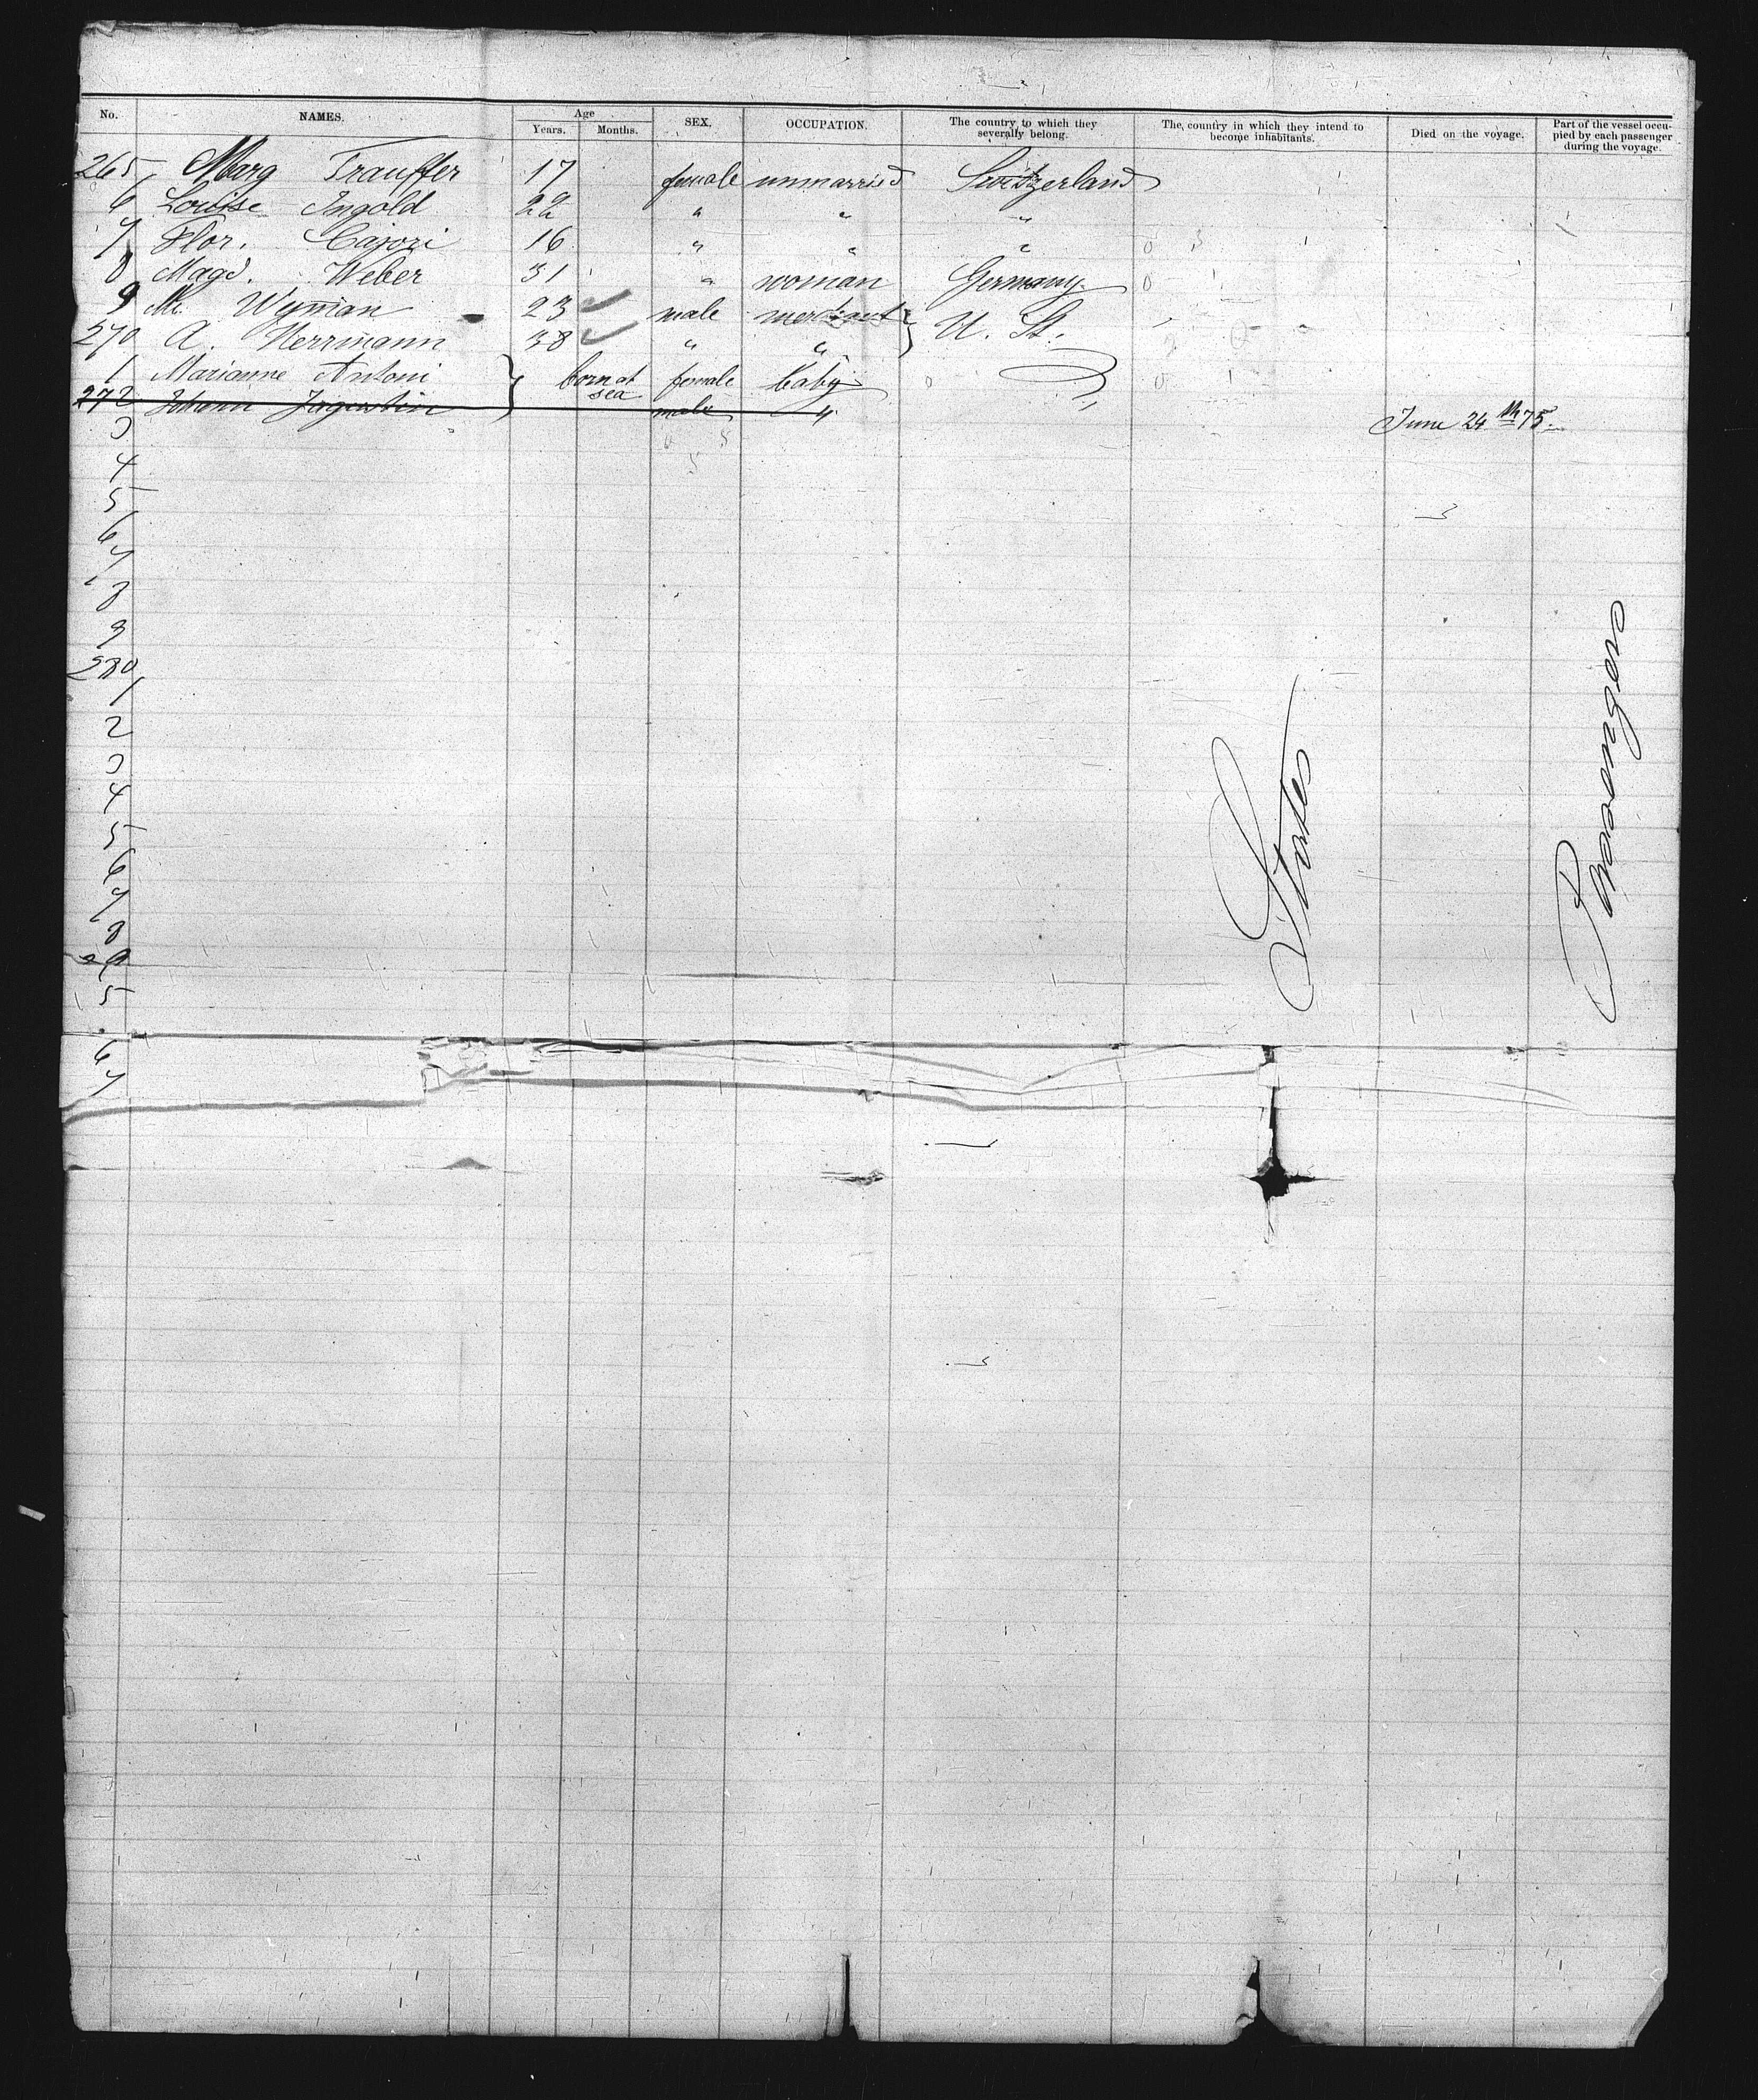 No. NAMES. Age Years. Months. SEX. OCCUPATION. The country to which they severally belong. The country in which they intend to become inhabitants. Died on the voyage. Part of the vessel occupied by each passenger during the voyage.
265 Marg Trauffer 17 female unmarried Switzerland
6 Louise Ingold 22 " " "
7 Flor. Cajori 16 " " "
8 Magd. Weber 31 " woman Germany
9 Mr. Wyman 23 male merchant } U. St.
270 A. Herrmann 38 " "
1 Marianne Antoni } born at sea female baby
272 Johann male " June 24th 75.
3
4
5
6
7
8
9
280
1
2
3
4
5
6
7
8
5
6
7
States
Passengers